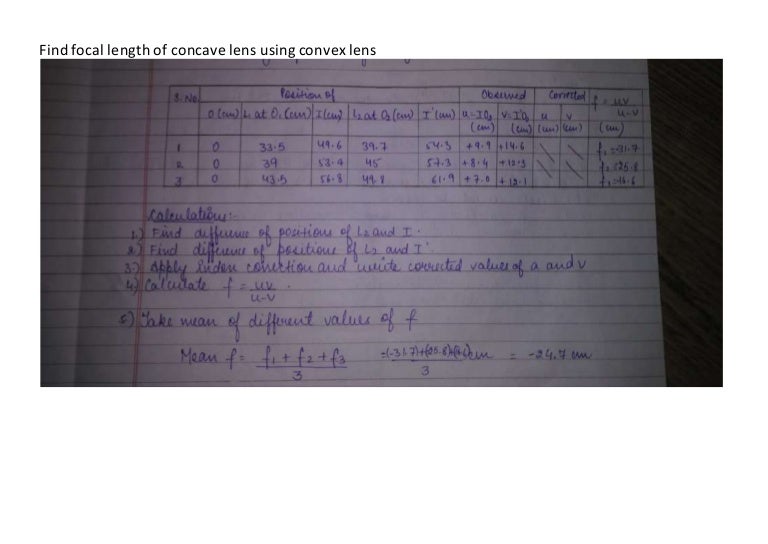 Find focal length of concave lens using convex lens
S.No. Position of Observed Corrected f = uv
u-v
O (cm) L₁ at O₁ (cm) I (cm) L₂ at O₂ (cm) I' (cm) u=IO₂ (cm) v=I'O₂ (cm) u (cm) v (cm) (cm)
1 0 33.5 49.6 39.7 54.3 +9.9 +14.6 f₁=-31.7
2 0 39 53.4 45 57.3 +8.4 +12.3
3 0 43.5 56.8 49.8 61.9 +7.0 +12.1
Calculations:-
1.) Find difference of positions of L₂ and I.
2.) Find difference of positions of L₂ and I'.
3.) Apply index correction and write corrected values of u and v
4.) Calculate f = uv .
u-v
5.) Take mean of different values of f
Mean f = f₁ + f₂ + f₃ cm = -24.7 cm
3 3